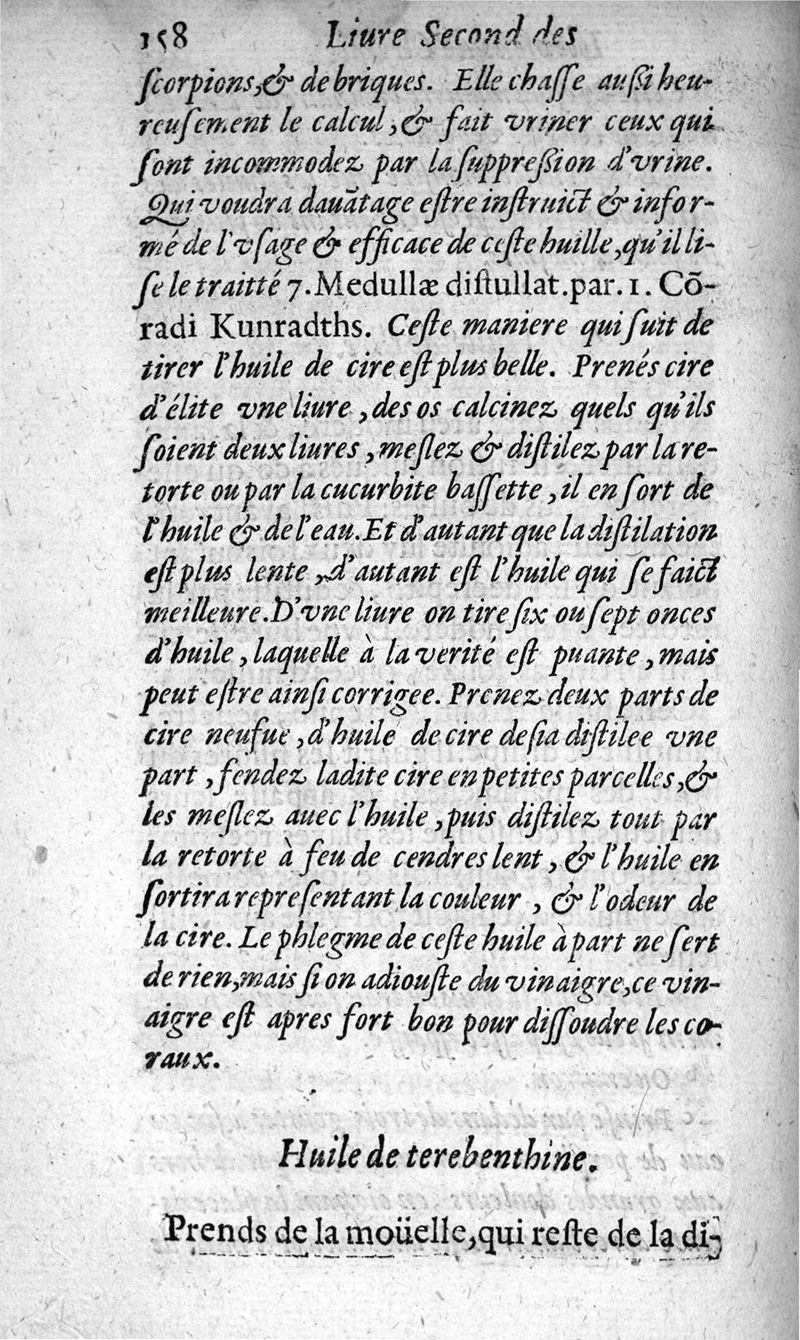 158 Liure Second des
ſcorpions,& de briques. Elle chaſſe auſſi heu-
reuſement le calcul,& fait vriner ceux qui
ſont incommodez par la ſuppreſſion d'vrine.
Qui voudra dauãtage eſtre inſtruict & infor-
mé de l'vſage & efficace de ceſte huille,qu'il li-
ſe le traitté 7.Medullæ diſtullat.par.1. Cõ-
radi Kunradths. Ceſte maniere qui ſuit de
tirer l'huile de cire eſt plus belle. Prenés cire
d'élite vne liure,des os calcinez quels qu'ils
ſoient deux liures,meſlez & diſtilez par la re-
torte ou par la cucurbite baſſette,il en ſort de
l'huile & de l'eau.Et d'autant que la diſtilation
eſt plus lente,d'autant eſt l'huile qui ſe faict
meilleure.D'vne liure on tire ſix ou ſept onces
d'huile,laquelle à la verité eſt puante,mais
peut eſtre ainſi corrigee. Prenez deux parts de
cire neufue,d'huile de cire deſia diſtilee vne
part,fendez ladite cire en petites parcelles,&
les meſlez auec l'huile,puis diſtilez tout par
la retorte à feu de cendres lent,& l'huile en
ſortira repreſentant la couleur , & l'odeur de
la cire. Le phlegme de ceſte huile à part ne ſert
de rien,mais ſi on adiouſte du vinaigre,ce vin-
aigre eſt apres fort bon pour diſſoudre les co-
raux.
Huile de terebenthine.
Prends de la moüelle,qui reſte de la di-